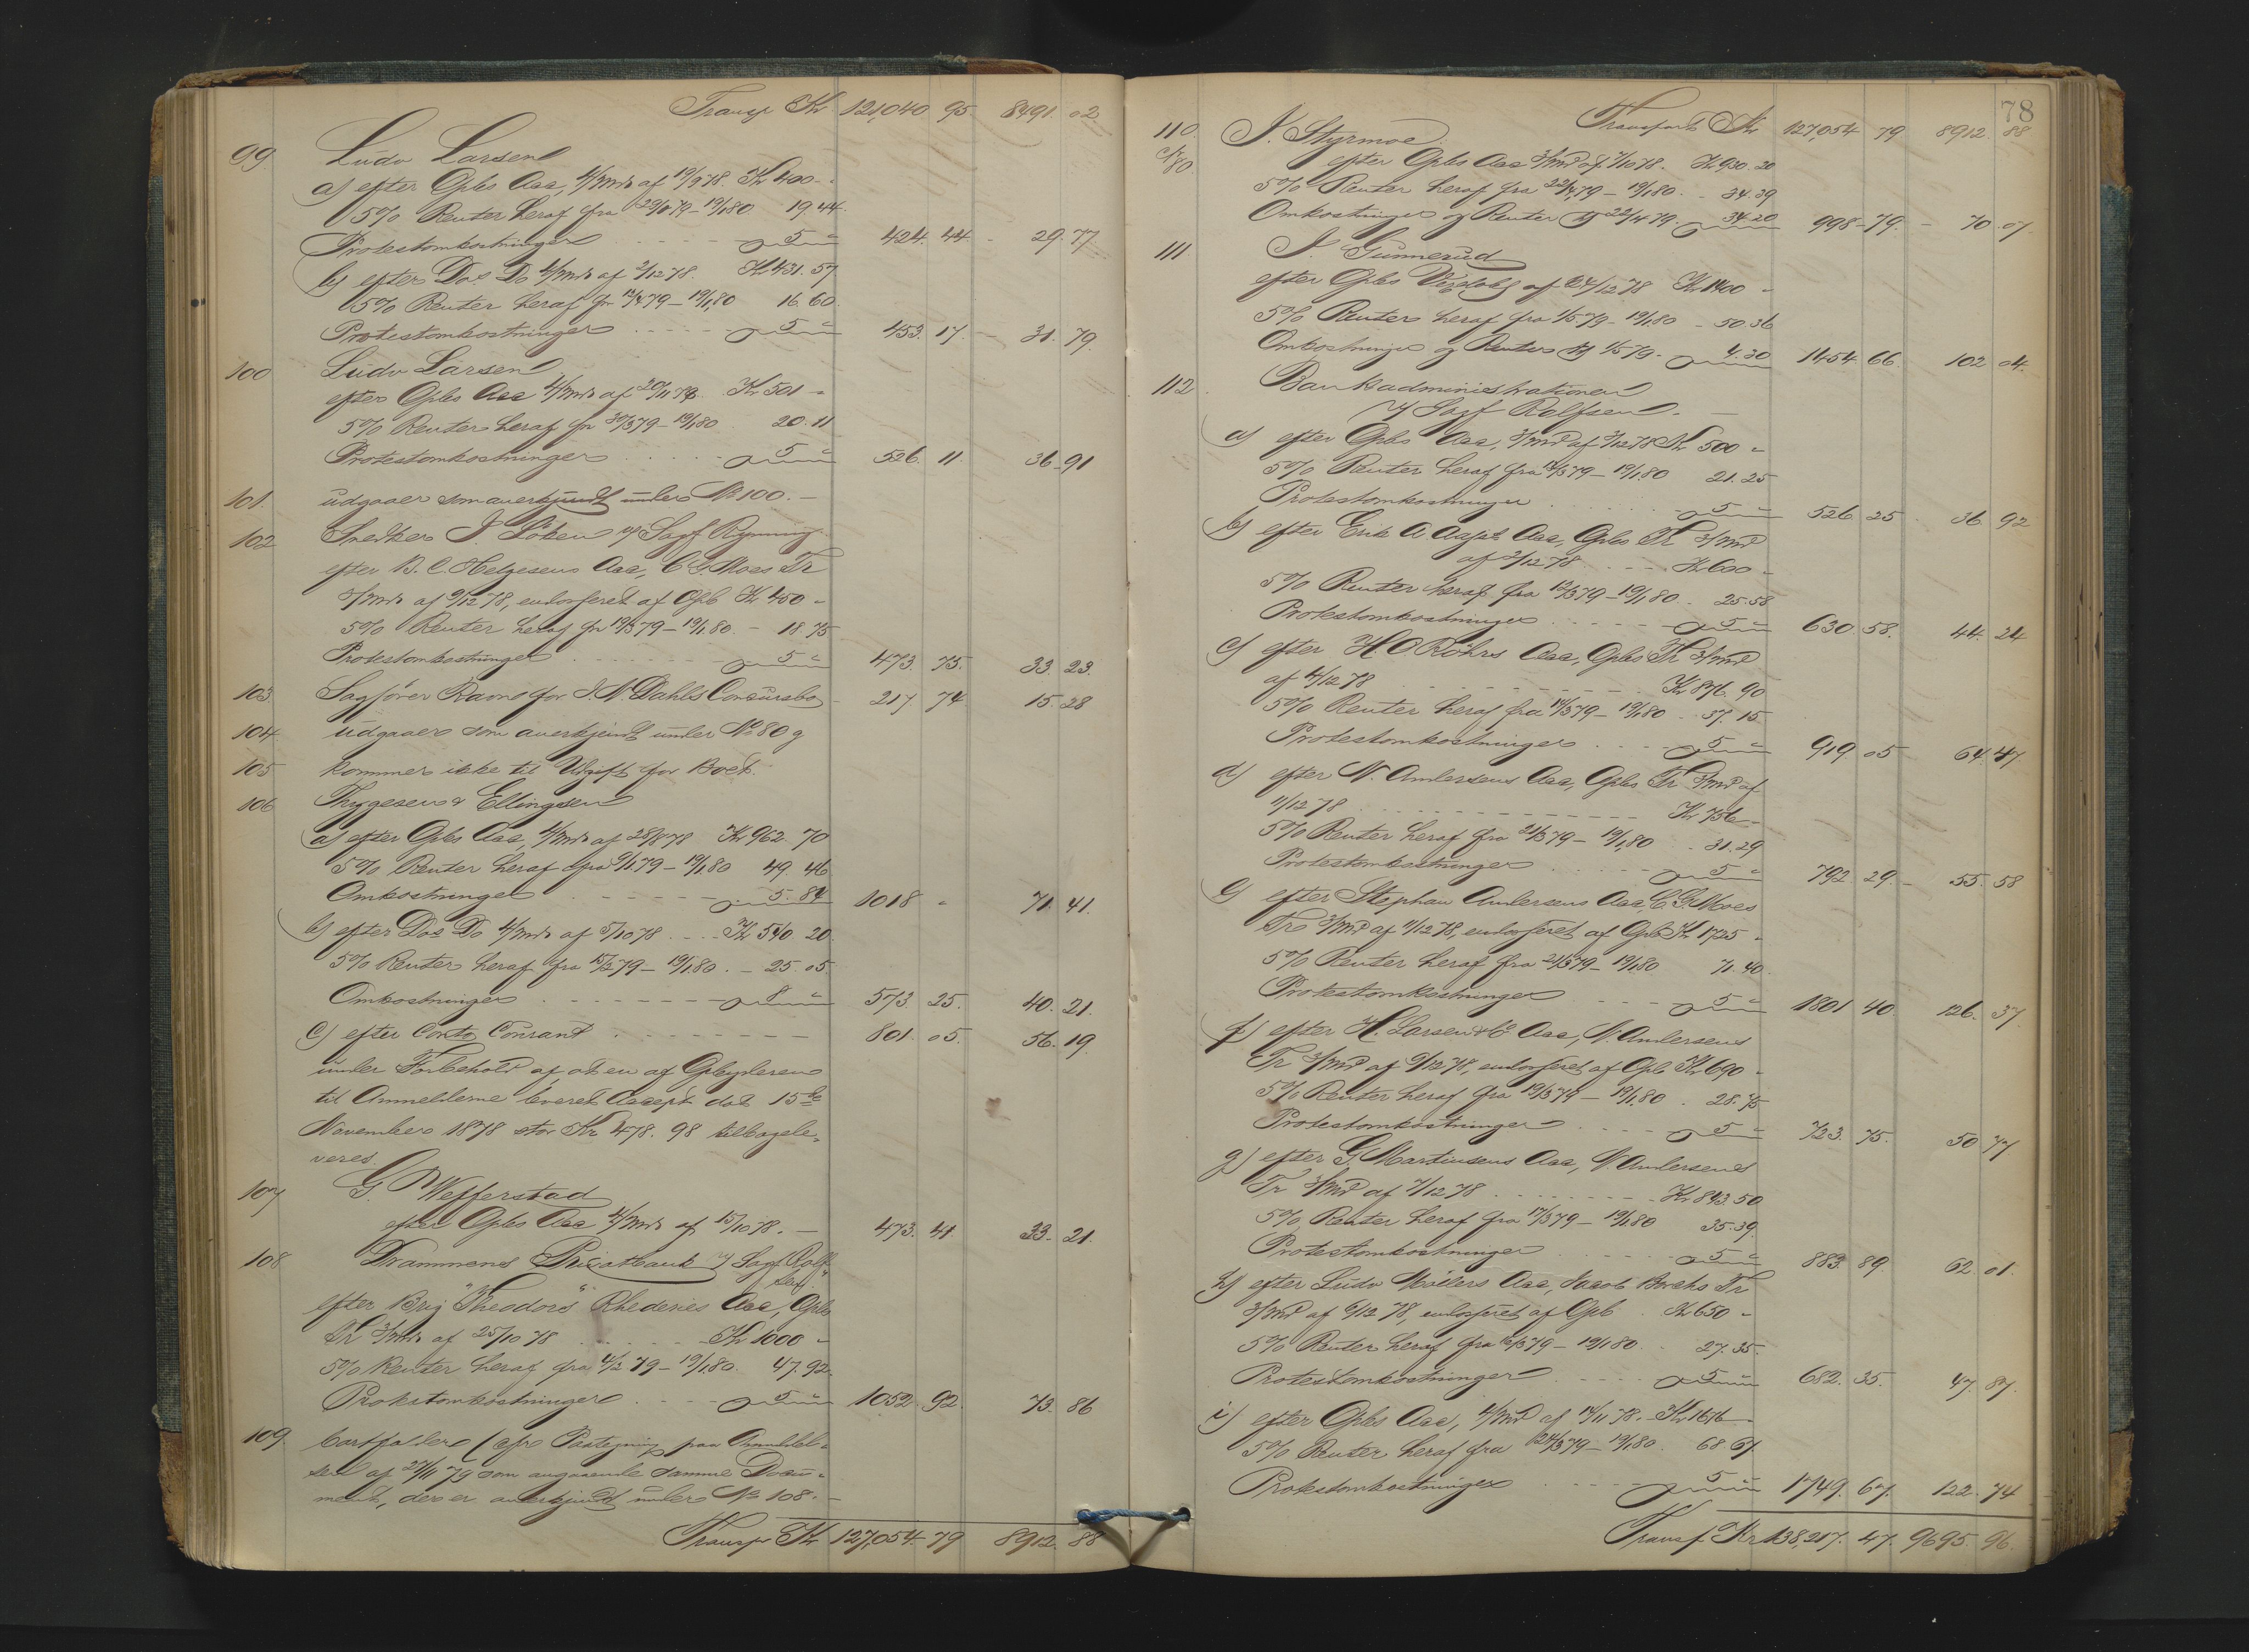 Transp Kr 121,040 95 8491. 02
99 Ludv Larsen
a) efter Gpbs Acc, 4/Mnds af 19/9 78. Kr 400 "
5% Renter heraf fra 29/1 79 - 19/1 80 19 44
Protestomkostninger 5 " 424. 44 29. 77
b) efter Dos Do 4/Mnds af 2/12 78. Kr 431. 57
5% Renter heraf fr 12/4 79 - 19/1 80 16. 60
Protestomkostninger 5 " 453. 17 31. 79
100 Ludv Larsen
efter Gpbs Acc 4/Mnds af 20/11 78 Kr 501 "
5% Renter heraf fr 30/3 79 - 19/1 80 20. 11
Protestomkostninger 5 " 526. 11 36. 91
101. udgaaer som anerkjendt under No 100. -
102 Snedker J Löken v/ Sagf Rynning
efter B. C. Helgesens Acc, C G. Moes Tr
3/Mnds af 9/12 78, endosseret af Gpb Kr 450 "
5% Renter heraf fr 19/3 79 - 19/1 80. - 18. 75
Protestomkostninger 5 " 473. 75. 33. 23.
103 Sagförer Ravn for J. N. Dahls Concursbo 217. 74 15. 28
104 udgaaer som anerkjendt under No 80 g
105 kommer ikke til Udgift for Boet.
106 Thygesen & Ellingsen
a) efter Gpbs Acc, 4/Mnds af 28/8 78 Kr 962. 70
5% Renter heraf fra 9/1 79 - 19/1 80 49. 46
Omkostninger 5. 84 1018 " 71. 41.
b) efter Dos Do 4/Mnds af 5/10 78 Kr 540. 20.
5% Renter heraf fra 15/2 79 - 19/1 80. - 25. 05
Omkostninger 8 " 573 25. 40. 21.
c) efter Conto Courant 801. 05. 56. 19
under Forbehold af at en af Gpbyderen
til Anmelderne leveret Accept dat 15de
November 1878 stor Kr 478. 98 tilbagele-
veres.
107 G. Wefferstad
efter Gpbs Acc 4/Mnds af 15/10 78. - 473. 41 33. 21.
108 Drammens Privatbank v/ Sagf Rolf-
sen
efter Brig "Theodors" Rhederies Acc, Gpbs
Tr 3/Mnds af 25/10 78 Kr 1000 "
5% Renter heraf fra 4/2 79 - 19/1 80. 47. 92.
Protestomkostninger 5 " 1052. 92. 73. 86
109. bortfalder (cfr Paategning paa Anmeldel-
sen af 27/11 79 som angaaende samme Docu-
ment, der er anerkjendt under No 108. -
Transp Kr 127,054. 79 8912. 88
78
Transport Kr 127,054 79 8912. 88
110. J. Styrmoe
efter Gpbs Acc 3/Mnd af 7/10 78. Kr 930. 20
/80. 5% Renter heraf fra 22/4 79 - 19/1 80. - 34. 39
Omkostninger og Renter til 22/4 79. 34. 20 998 - 79. - 70. 07.
111 J. Gunnerud
efter Gpbs Vexelobl af 24/12 78 Kr 1400 "
5% Renter heraf fra 1/5 79 - 19/1 80 - 50. 36
Omkostninger og Renter til 1/5 79. 4. 30 1454. 66 102 04.
112. Bankadministrationen
v/ Sagf Rolfsen. -
a) efter Gpbs Acc, 3/Mnd af 3/12 78 Kr 500 "
5% Renter heraf fra 13/3 79 - 19/1 80 21. 25
Protestomkostninger 5 " 526 25 36 92
b) efter Erik A Aasets Acc, Gpbs Tr 3/Mnd
af 2/12 78 Kr 600 "
5% Renter heraf fra 12/3 79 - 19/1 80. 25. 58
Protestomkostninger 5 " 630. 58. 44. 24
c) efter H. O Röhrs Acc, Gpbs Tr 3/Mnd
af 4/12 78 Kr 876. 90
5% Renter heraf fra 14/3 79 - 19/1 80 37. 15
Protestomkostninger 5 " 919 05 64. 47
d) efter N. Andersens Acc, Gpbs Tr 3/Mnd af
11/12 78 Kr 756 -
5% Renter heraf fra 21/3 79 - 19/1 80 31. 29
Protestomkostninger 5 " 792. 29. - 55. 58
e) efter Stephan Andersens Acc, C. G. Moes
Tr 3/Mnd af 11/12 78, endosseret af Gpb Kr 1725 "
5% Renter heraf fra 21/3 79 - 19/1 80 71. 40.
Protestomkostninger 5 " 1801 40. 126. 37
f) efter H. Larsen & Co Acc, N. Andersens
Tr 3/Mnd af 9/12 78, endosseret af Gpb Kr 690 "
5% Renter heraf fra 19/3 79 - 19/1 80. 28. 75
Protestomkostninger 5 " 723. 75. 50 77
g) efter G. Martinsens Acc, N Andersens
Tr 3/Mnd af 7/12 78 Kr 843. 50
5% Renter heraf fra 17/3 79 - 19/1 80 35. 39.
Protestomkostninger 5 " 883. 89. 62. 01.
h) efter Ludv Möllers Acc, Jacob Borchs Tr
3/Mnd af 6/12 78, endosseret af Gpb Kr 650 "
5% Renter heraf fra 16/3 79 - 19/1 80 27. 35.
Protestomkostninger 5 " 682. 35. 47. 87.
i) efter Gpbs Acc, 4/Mnd af 14/11 78. Kr 1676 -
5% Renter heraf fra 24/3 79 - 19/1 80. 68 67.
Protestomkostninger 5 " 1749. 67. 122. 74
Transp Kr 138,217. 47. 9695. 96.